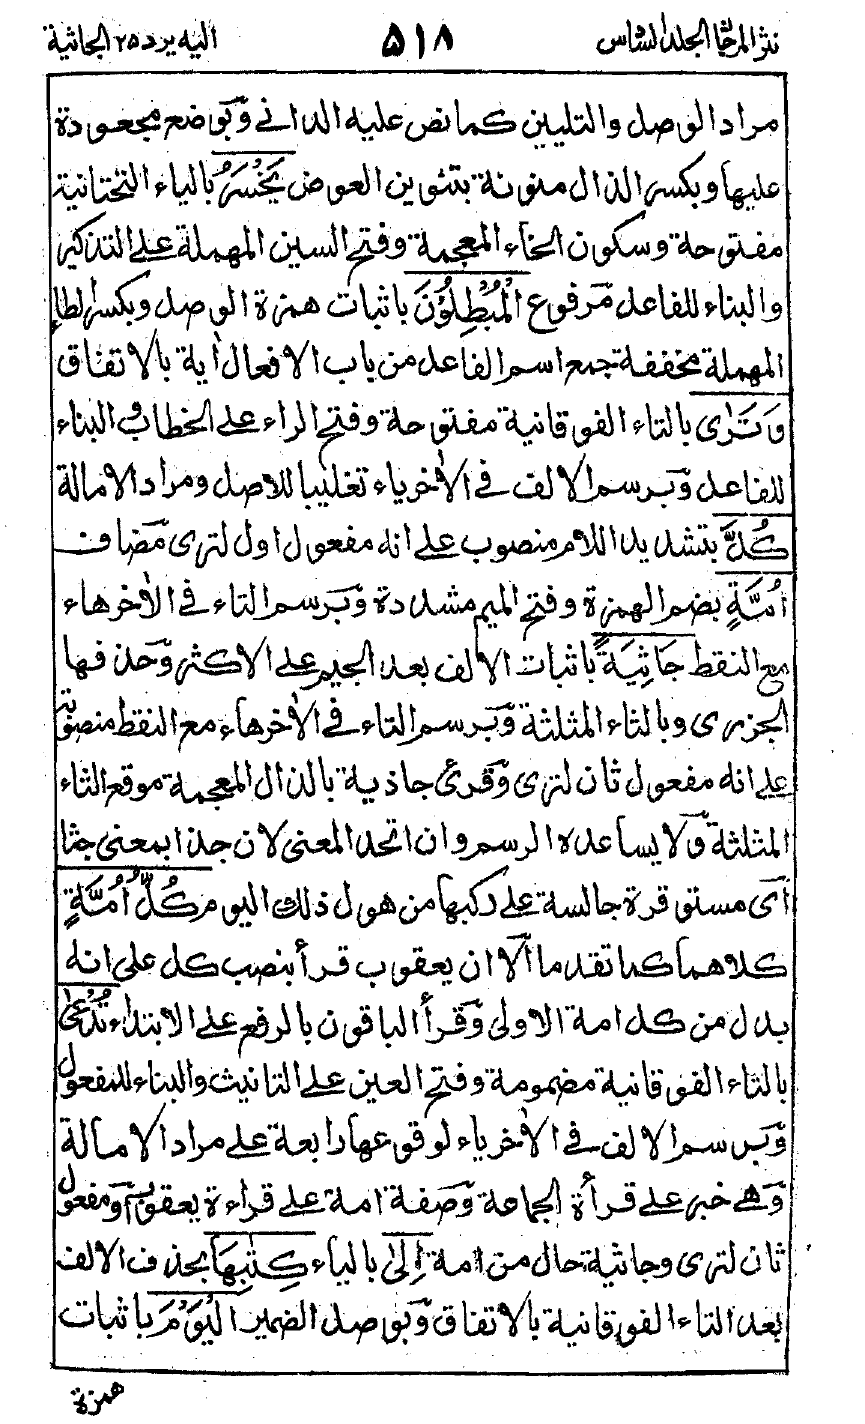 نثر المرجان الجلد السادس ٥١٨ اليه يرد ٢٥ الجاثية
مراد الوصل والتليين كما نص عليه الداني وبوضع مجعودة
عليها وبكسر الذال منونة بتنوين العوض يَخْسَرُ بالياء التحتانية
مفتوحة وسكون الخاء المعجمة وفتح السين المهملة على التذكير
والبناء للفاعل مرفوع الْمُبْطِلُوْنَ باثبات همزة الوصل وبكسر الطاء
المهملة مخففة جمع اسم الفاعل من باب الافعال اية بالاتفاق
وَتَرٰى بالتاء الفوقانية مفتوحة وفتح الراء على الخطاب والبناء
للفاعل وبرسم الالف في الأخر ياء تغليبا للاصل ومراد الامالة
كُلَّ بتشديد اللام منصوب على انه مفعول اول لترى مضاف
اُمَّةٍ بضم الهمزة وفتح الميم مشددة وبرسم التاء في الأخر هاء
مع النقط جَاثِيَةً باثبات الالف بعد الجيم على الاكثر وحذفها
الجزري وبالثاء المثلثة وبرسم التاء في الأخر هاء مع النقط منصوبة
على انه مفعول ثان لترى وقرئ جاذية بالذال المعجمة موقع الثاء
المثلثة ولا يساعده الرسم وان اتحد المعنى لان جذا بمعنى جثا
اى مستوقرة جالسة على ركبها من هول ذلك اليوم كُلُّ اُمَّةٍ
كلاهما كما تقدما الا ان يعقوب قرأ بنصب كل على انه
بدل من كل امة الاولى وقرأ الباقون بالرفع على الابتداء تُدْعٰى
بالتاء الفوقانية مضمومة وفتح العين على التانيث والبناء للمفعول
وبرسم الالف في الأخر ياء لوقوعها رابعة على مراد الامالة
وهي خبر على قرأة الجماعة وصفة امة على قراءة يعقوب او مفعول
ثان لترى وجاثية حال من امة اِلٰى بالياء كِتٰبِهَا بحذف الالف
بعد التاء الفوقانية بالاتفاق وبوصل الضمير اَلْيَوْمَ باثبات
همزة